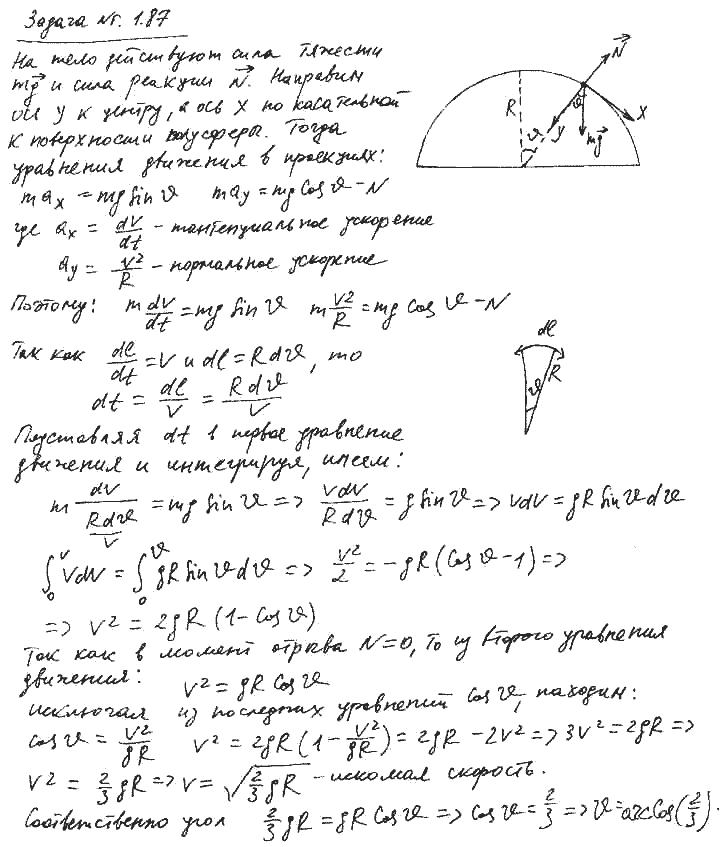 Задача № 1.87
На тело действуют сила тяжести
mg⃗ и сила реакции N⃗. Направим
оси У к центру, а ось Х по касательной
к поверхности полусферы. Тогда
уравнения движения в проекциях:
maₓ = mg sin ϑ   ma_y = mg cos ϑ − N
где aₓ = dV/dt – тангенциальное ускорение
a_y = V²/R – нормальное ускорение
Поэтому: m dV/dt = mg sin ϑ   m V²/R = mg cos ϑ − N
Так как dl/dt = V и dl = R dϑ, то
dt = dl/V = R dϑ/V
Подставляя dt в первое уравнение
движения и интегрируя, имеем:
m dV/(R dϑ/V) = mg sin ϑ => V dV/(R dϑ) = g sin ϑ => V dV = gR sin ϑ dϑ
∫₀^V V dV = ∫₀^ϑ gR sin ϑ dϑ => V²/2 = −gR (cos ϑ − 1) =>
=> V² = 2gR (1 − cos ϑ)
Так как в момент отрыва N = 0, то из второго уравнения
движения: V² = gR cos ϑ
исключая из последних уравнений cos ϑ, находим:
cos ϑ = V²/gR   V² = 2gR (1 − V²/gR) = 2gR − 2V² => 3V² = 2gR =>
V² = 2/3 gR => V = √(2/3 gR) – искомая скорость.
Соответственно угол 2/3 gR = gR cos ϑ => cos ϑ = 2/3 => ϑ = arccos(2/3).
N⃗
R
ϑ
У
ϑ
mg⃗
Х
dl
ϑ
R